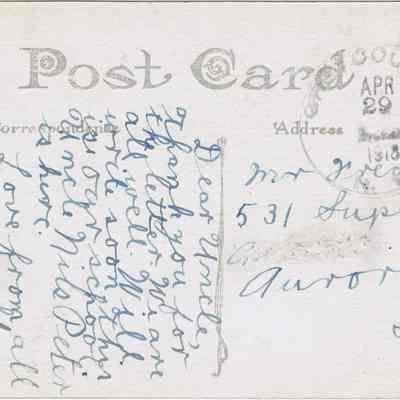 Post Card
Correspondence
Address
APR
29
Dear Uncle,
Thank you for
the letter. We are
all well. Will
write soon
is our
Uncle Nils Peter
is here.
Love from all
Mr
531 Sup
Auror